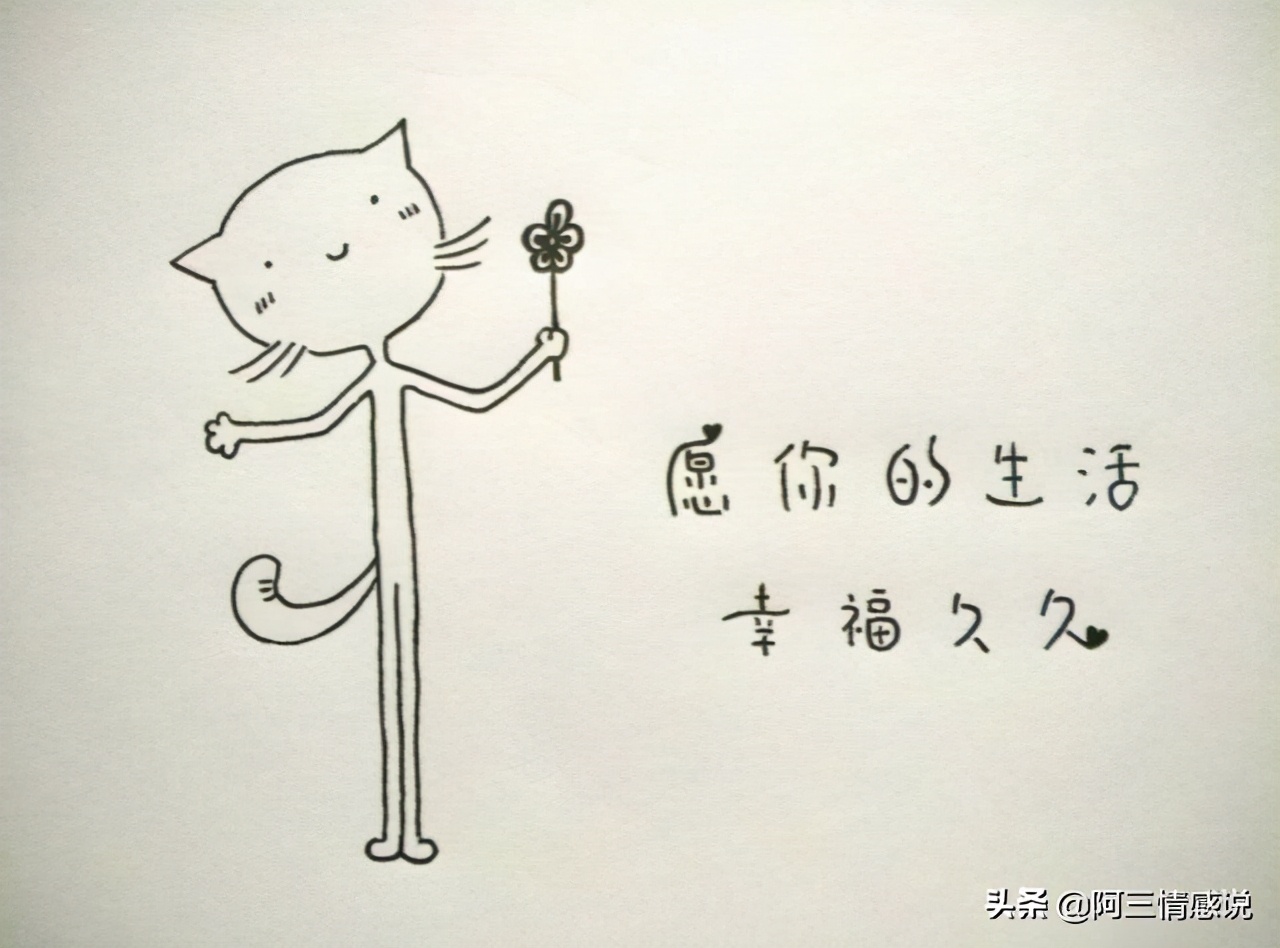 愿你的生活
幸福久久
头条 @阿三情感说